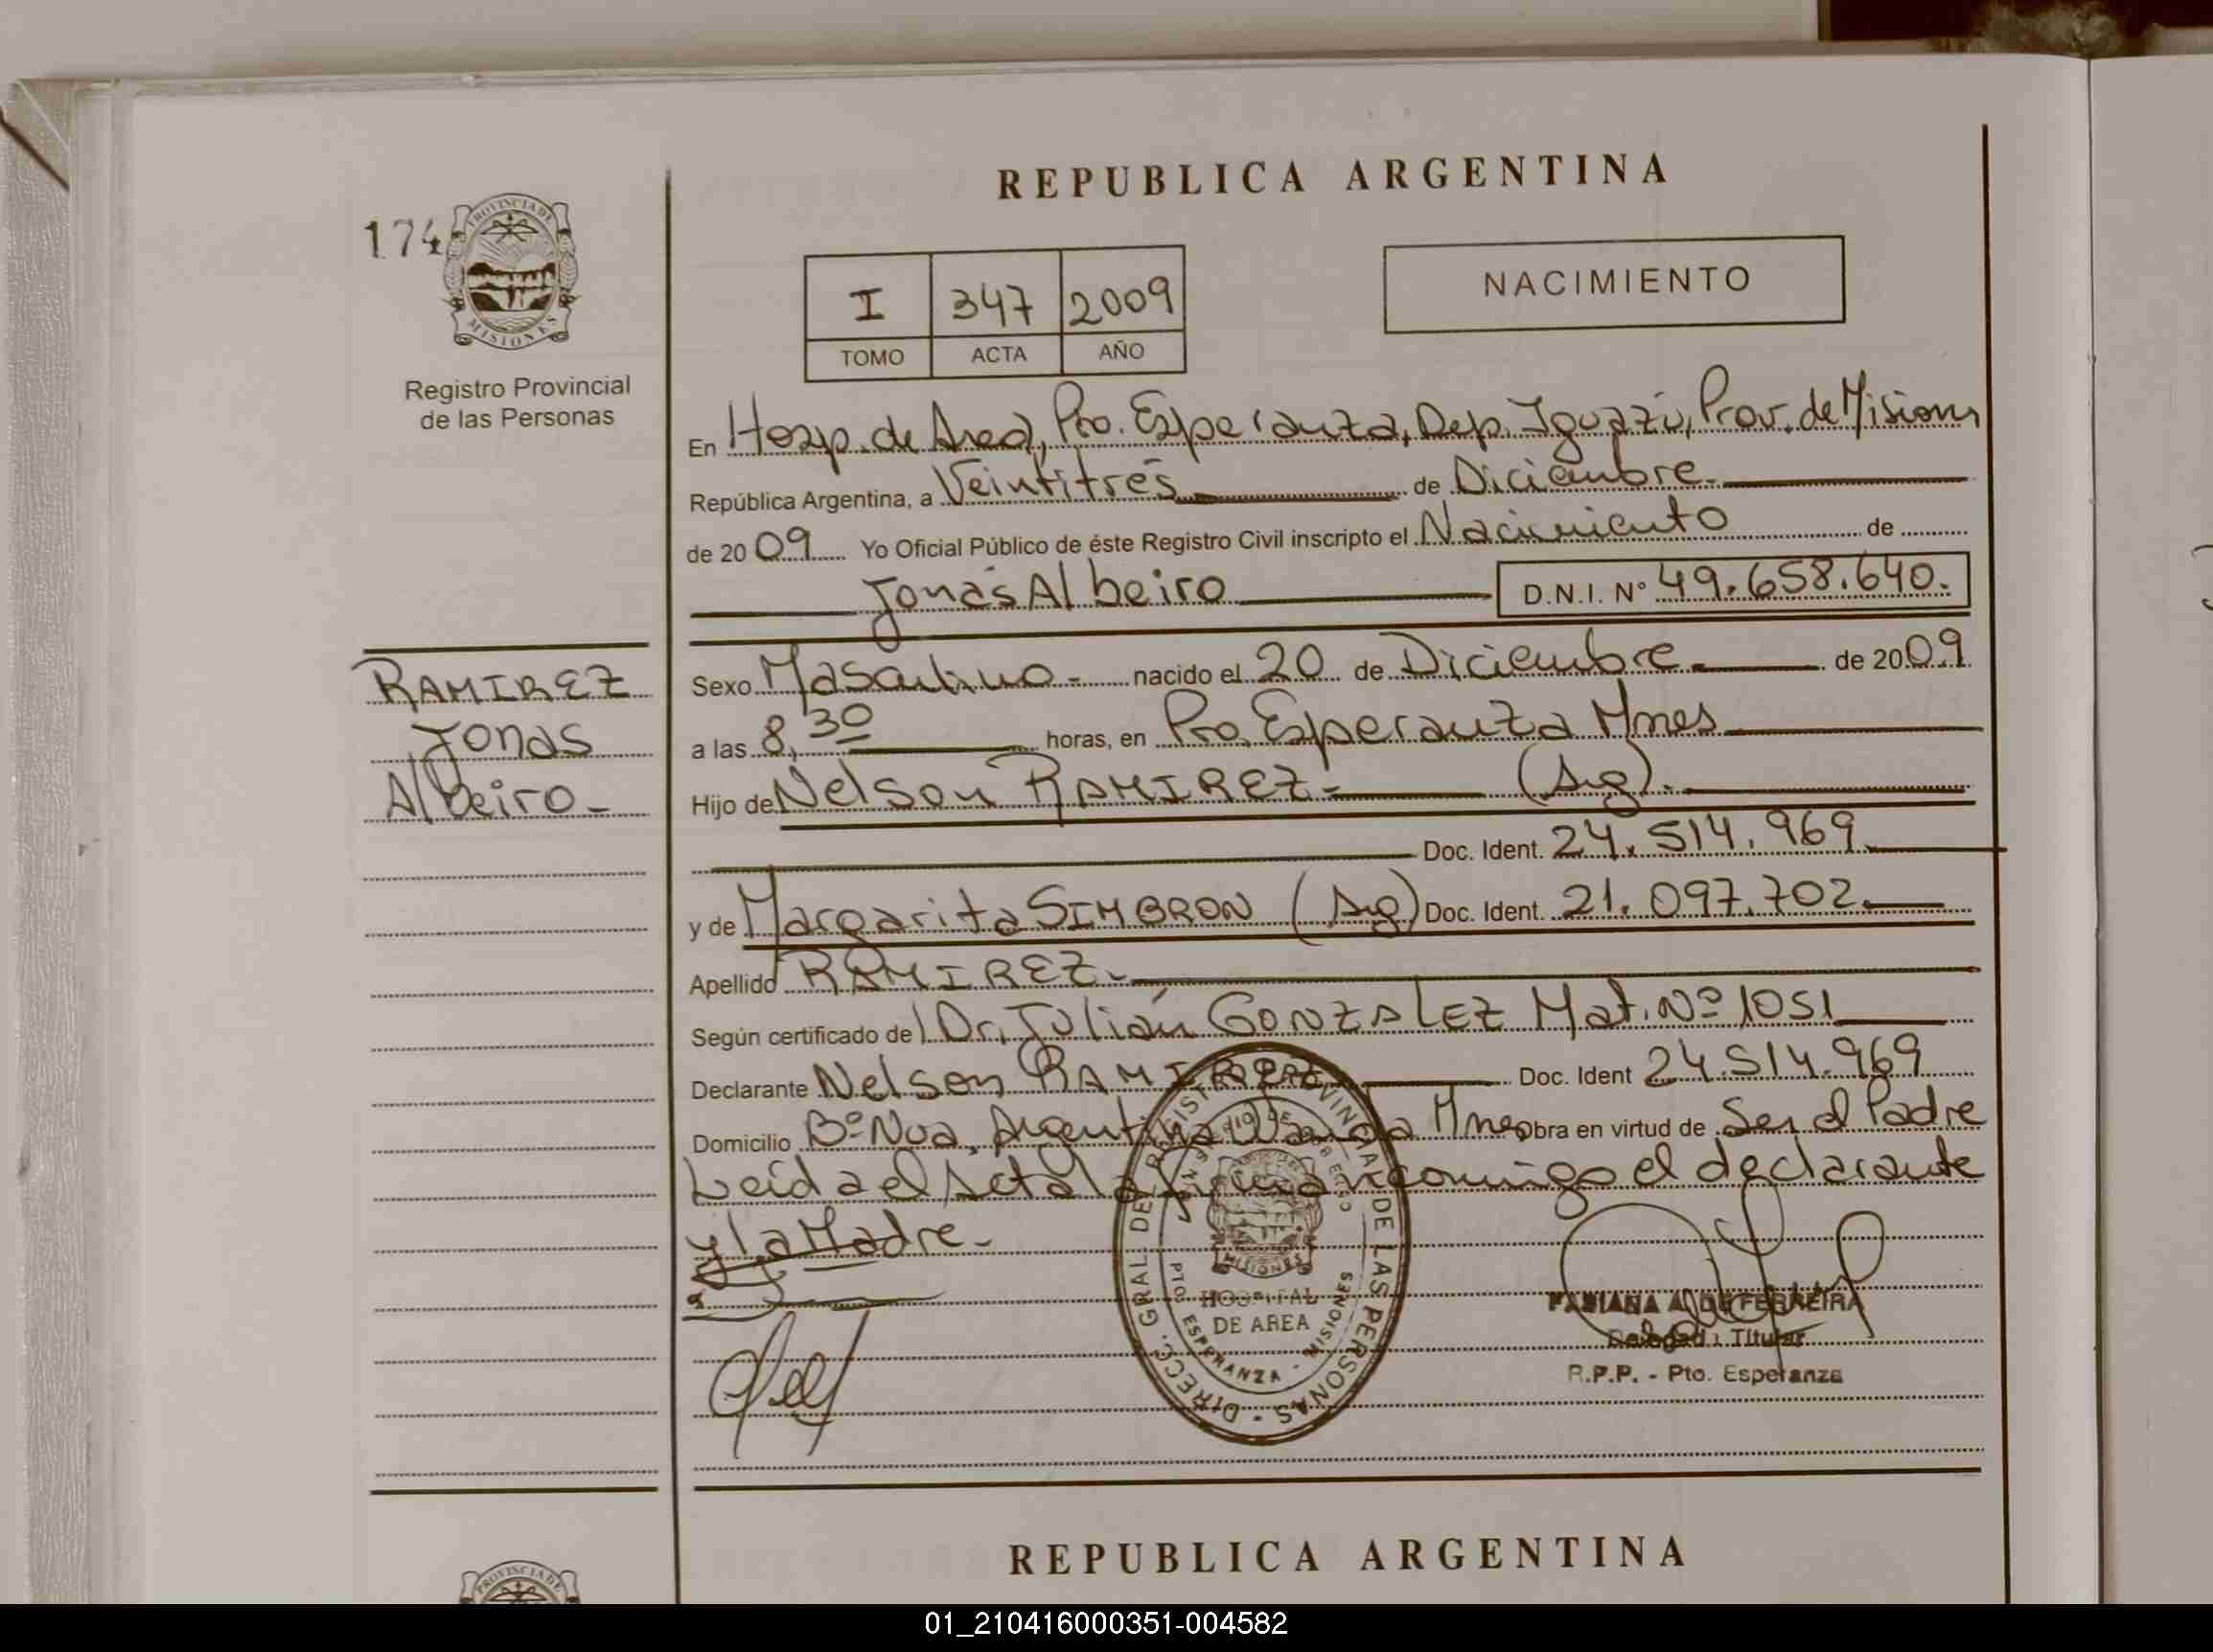 REPUBLICA ARGENTINA
174
PROVINCIA DE
MISIONES
Registro Provincial
de las Personas
I 347 2009
TOMO ACTA AÑO
NACIMIENTO
En Hosp. de Area, Pto. Esperanza, Dep. Iguazú, Prov. de Misiones
República Argentina, a Veintitrés de Diciembre.
de 2009 Yo Oficial Público de éste Registro Civil inscripto el Nacimiento de
Jonás Albeiro D.N.I. Nº 49.658.640.
RAMIREZ
Jonas
Albeiro-
Sexo Masculino- nacido el 20 de Diciembre- de 2009
a las 8,30 horas, en Pto. Esperanza Mnes
Hijo de Nelson RAMIREZ- (Arg).
Doc. Ident. 24.514.969
y de Margarita SIMBRON (Arg) Doc. Ident. 21.097.702.
Apellido RAMIREZ-
Según certificado de Dr. Julián GONZALEZ Mat. Nº 1051
Declarante Nelson RAMIREZ Doc. Ident 24.514.969
Domicilio Bº Nva. Argentina Wanda Mnes Obra en virtud de Ser el Padre
Leida el Acta la firman comigo el declarante
y la Madre-
DIRECC. GRAL DE REGISTRO PROVINCIAL DE LAS PERSONAS
MISIONES
HOSPITAL
DE AREA
PTO ESPERANZA - MISIONES
FABIANA A. DE FERREIRA
Delegada Titular
R.P.P. - Pto. Esperanza
REPUBLICA ARGENTINA
PROVINCIA DE
01_210416000351-004582